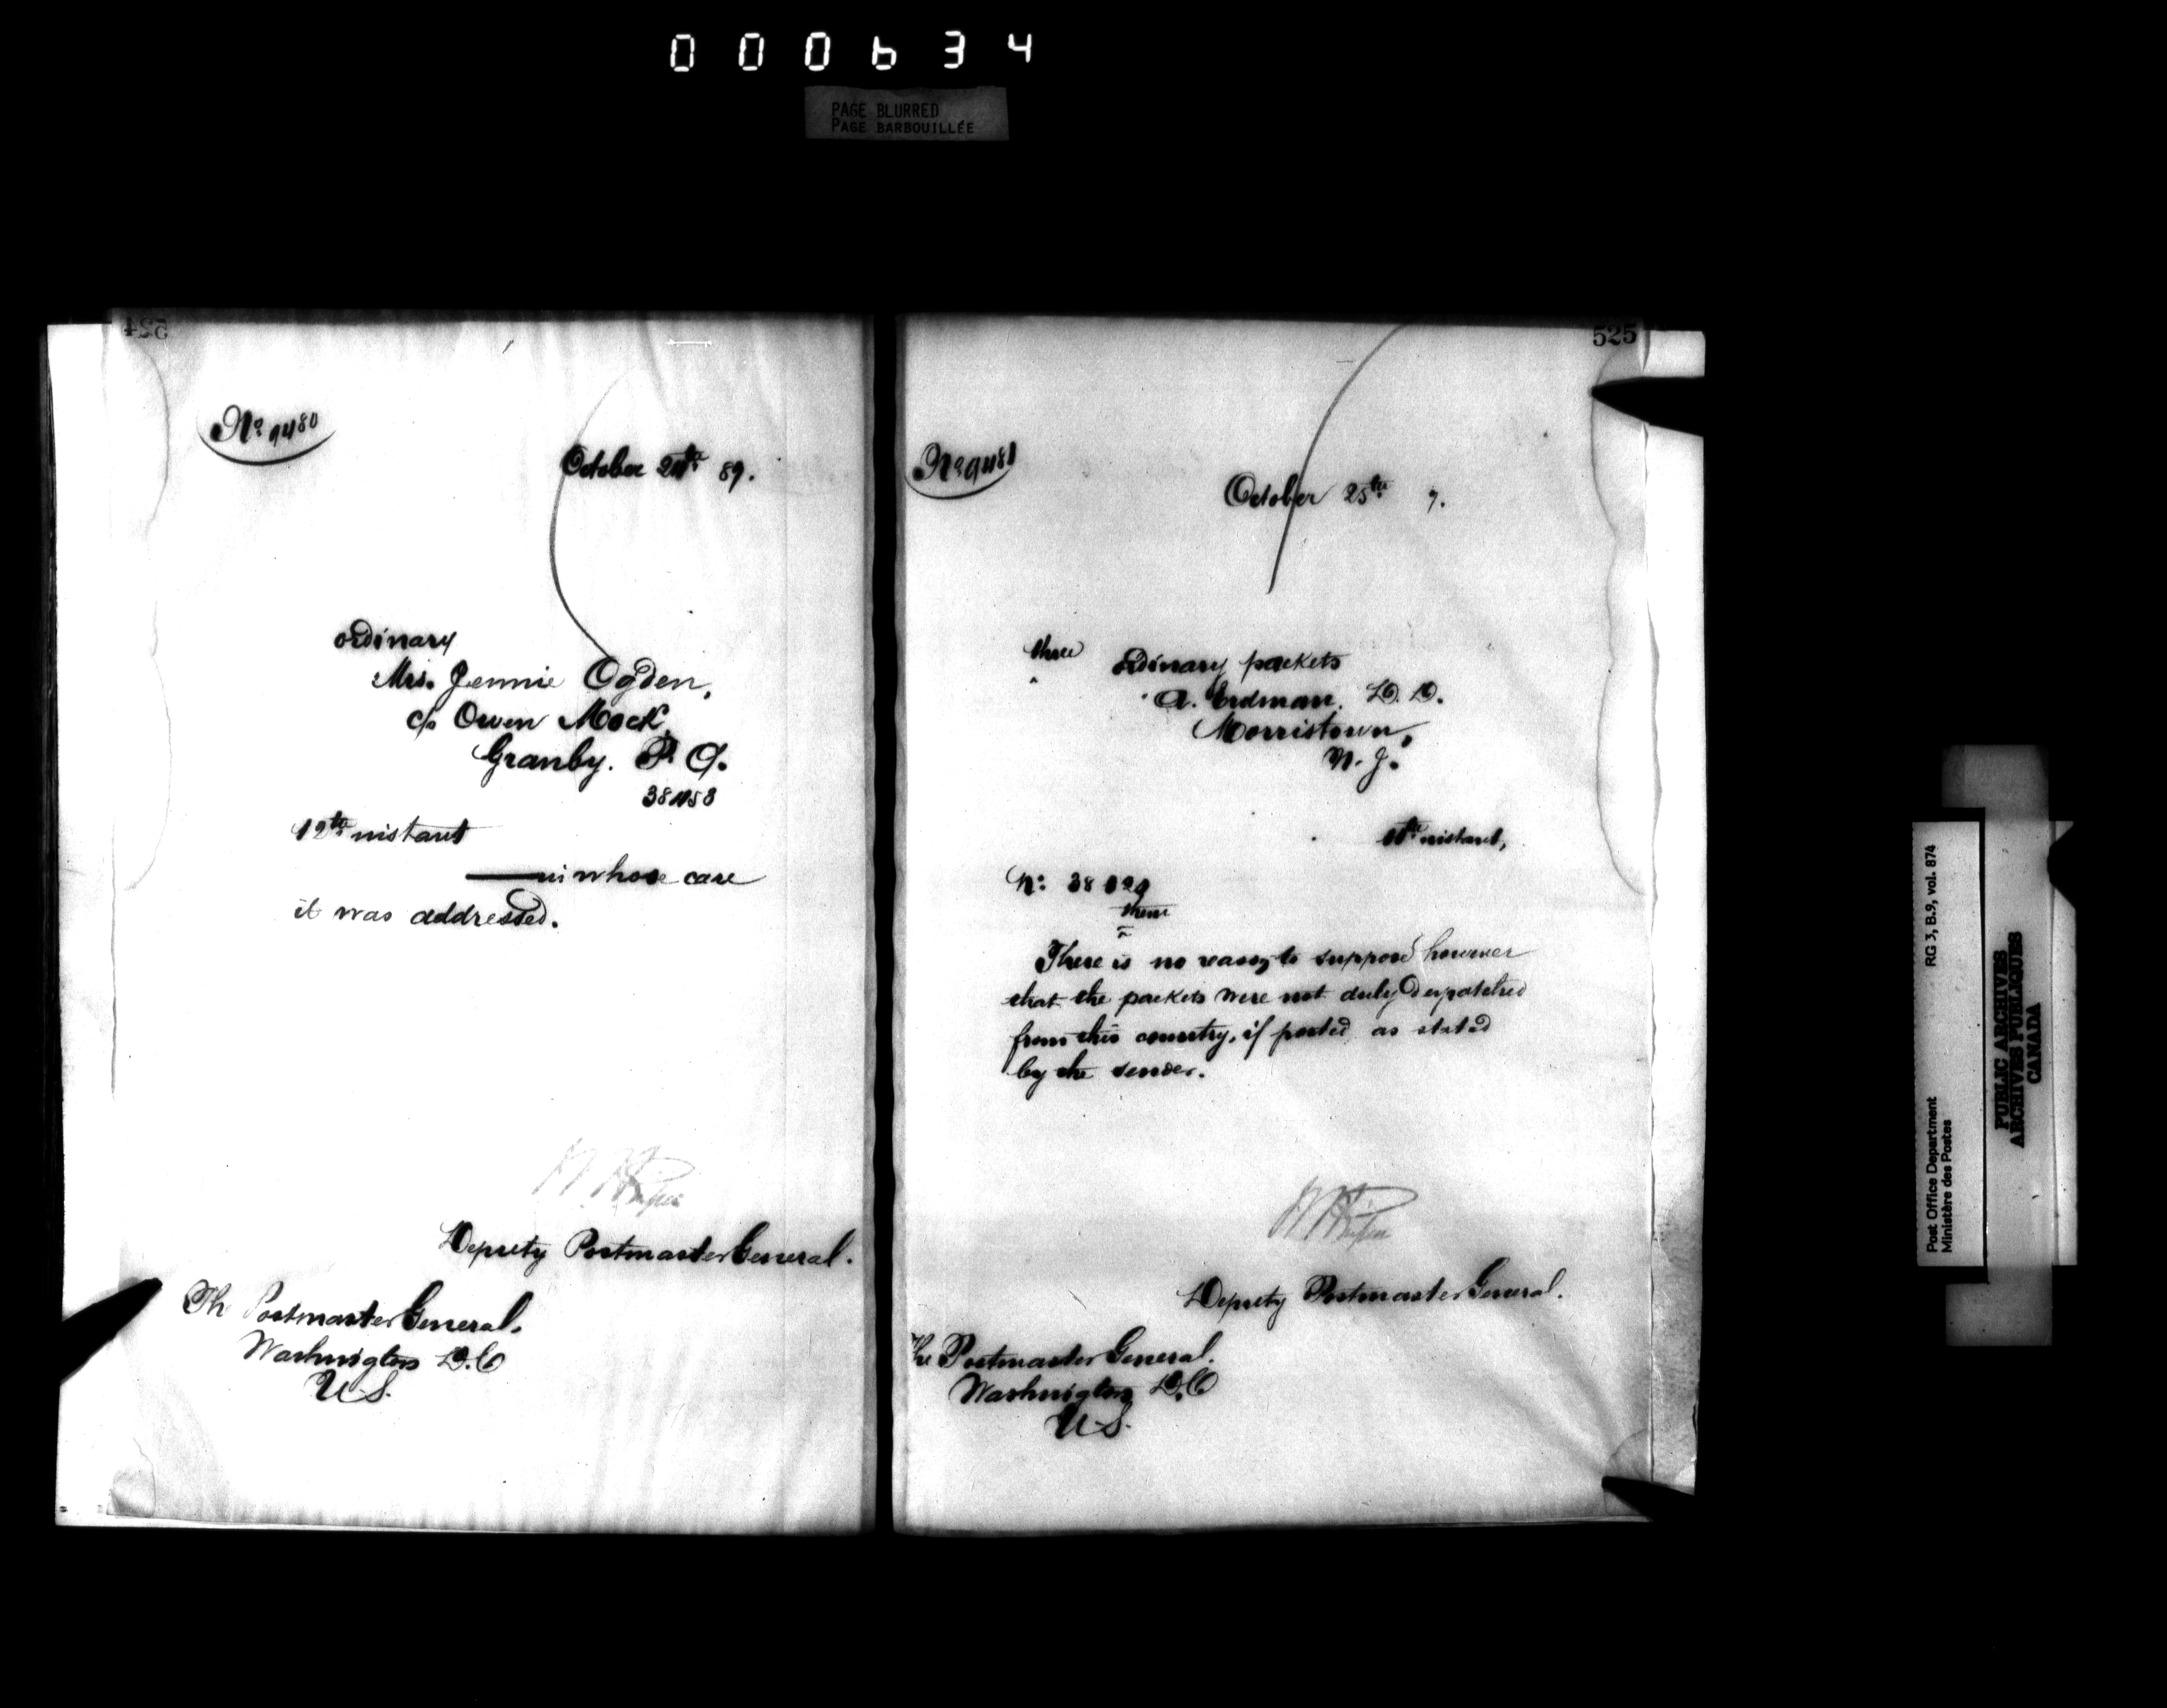 000634
PAGE BLURRED
PAGE BARBOUILLÉE
524
No. 9480
October 24th 89.
ordinary
Mrs. Jennie Ogden,
c/o Owen Mock,
Granby. P. Q.
12th instant
in whose care
it was addressed.
Deputy Postmaster General.
The Postmaster General.
Washington D.C
U.S.
525
No. 9481
October 25th 9.
three ordinary packets
A. Erdman, D. D.
Morristown,
N. J.
instant,
No.
them
There is no reason to suppose however
that the packets were not duly despatched
from this country, if posted as stated
by the sender.
Deputy Postmaster General.
The Postmaster General.
Washington D.C
U.S.
Post Office Department
Ministère des Postes
RG 3, B.9, vol. 874
PUBLIC ARCHIVES
ARCHIVES PUBLIQUES
CANADA